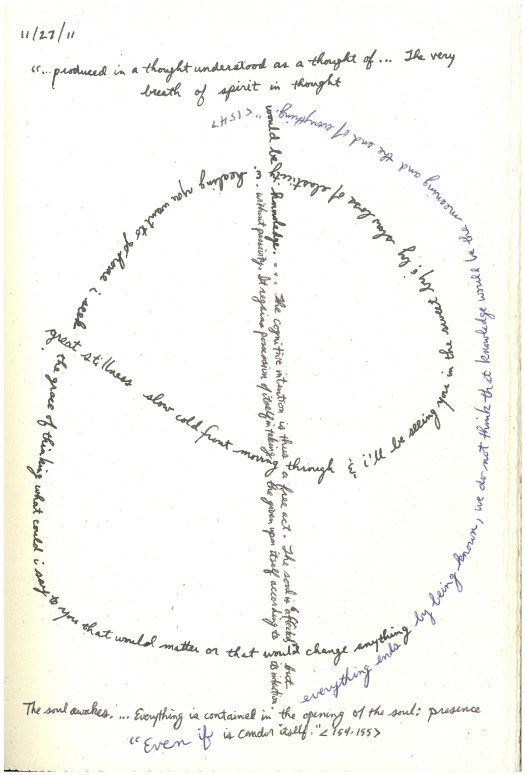 11/27/11
"...produced in a thought understood as a thought of... The very
breath of spirit in thought
would be knowledge. ... The cognitive intention is thus a free act. The soul is "affected" but
& without passivity. It regains possession of itself in taking the given upon itself according to its intention.
The soul awakes. ... Everything is contained in the opening of the soul: presence
is candor itself." <154-155>
"Even if
everything ends by being known, we do not think that knowledge would be the meaning and the end of everything." <154>
great stillness slow cold front moving through & i'll be seeing you in the sweet by & by slow loss of elasticity & healing you want to go home i seek
the grace of thinking what could i say to you that would matter or that would change anything